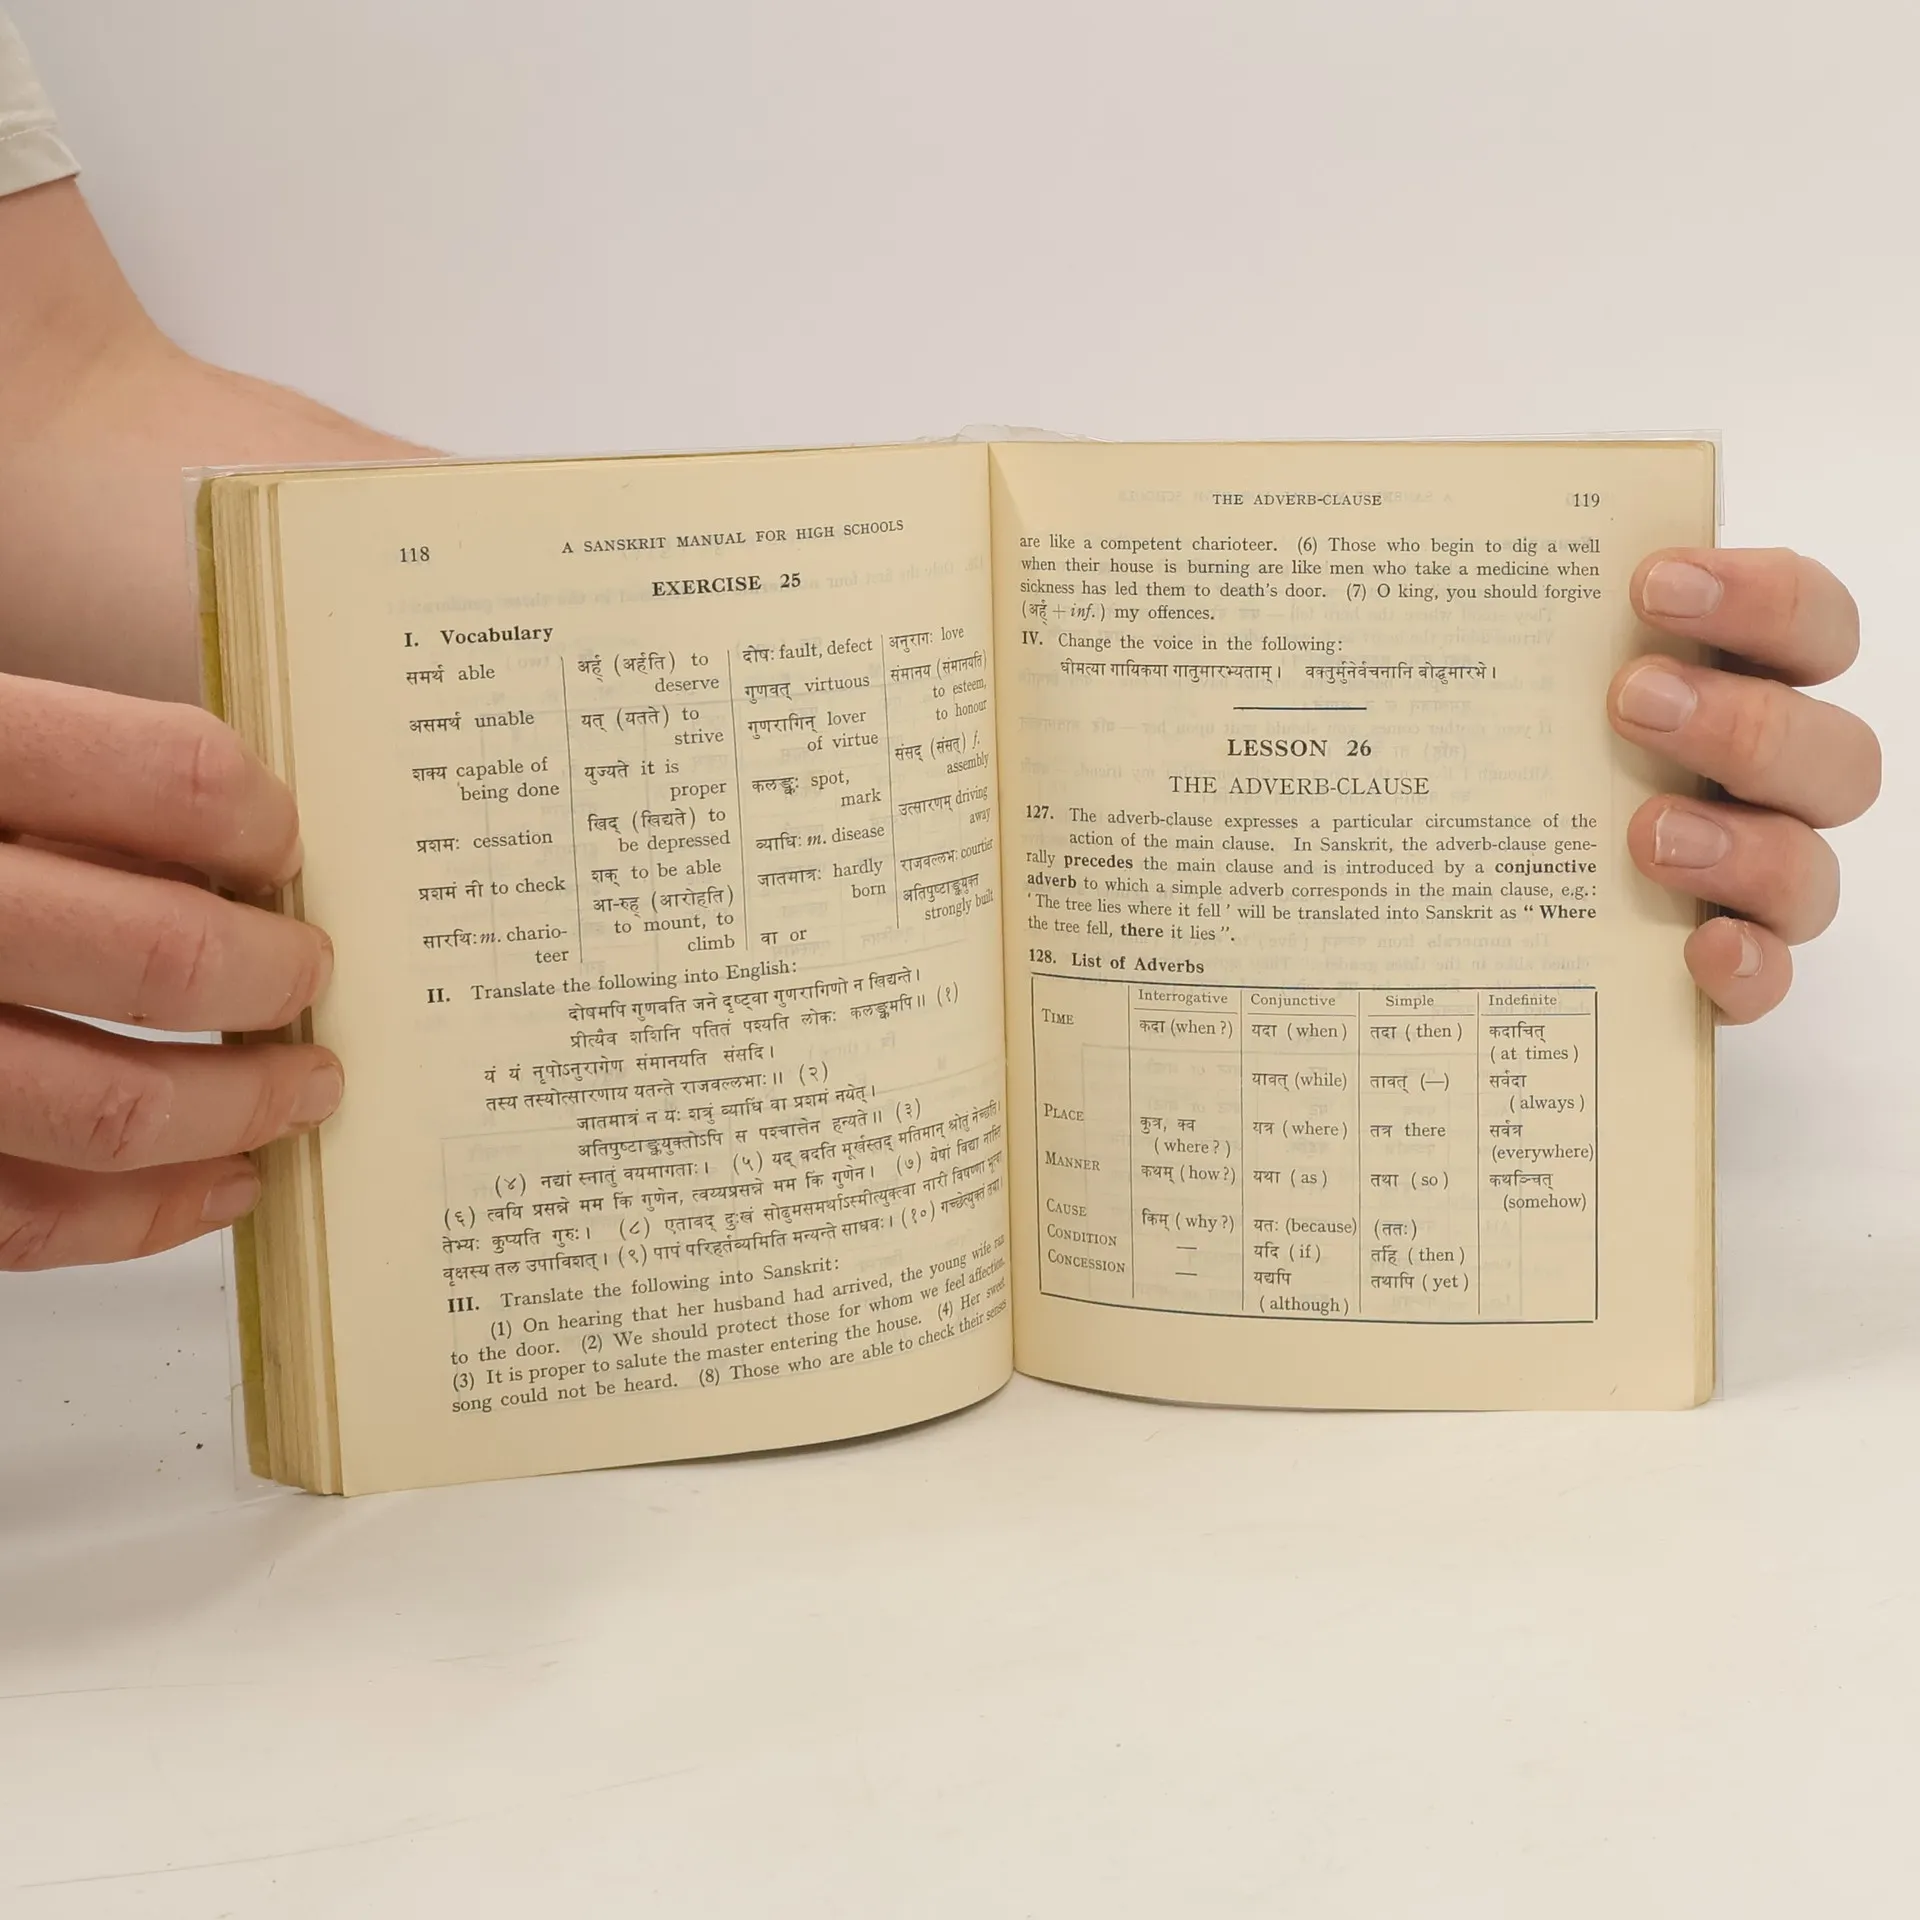 118 A SANSKRIT MANUAL FOR HIGH SCHOOLS
EXERCISE 25
I. Vocabulary
समर्थ able
असमर्थ unable
शक्य capable of
being done
प्रशमः cessation
प्रशमं नी to check
सारथिः m. chario-
teer
अर्ह् (अर्हति) to
deserve
यत् (यतते) to
strive
युज्यते it is
proper
खिद् (खिद्यते) to
be depressed
शक् to be able
आ-रुह् (आरोहति)
to mount, to
climb
दोषः fault, defect
गुणवत् virtuous
गुणरागिन् lover
of virtue
कलङ्कः spot,
mark
व्याधिः m. disease
जातमात्रः hardly
born
वा or
अनुरागः love
संमानय (संमानयति)
to esteem,
to honour
संसद् (संसत्) f.
assembly
उत्सारणम् driving
away
राजवल्लभः courtier
अतिपुष्टाङ्गयुक्त
strongly built
II. Translate the following into English:
दोषमपि गुणवति जने दृष्ट्वा गुणरागिणो न खिद्यन्ते।
प्रीत्यैव शशिनि पतितं पश्यति लोकः कलङ्कमपि॥ (१)
यं यं नृपोऽनुरागेण संमानयति संसदि।
तस्य तस्योत्सारणाय यतन्ते राजवल्लभाः॥ (२)
जातमात्रं न यः शत्रुं व्याधिं वा प्रशमं नयेत्।
अतिपुष्टाङ्गयुक्तोऽपि स पश्चात्तेन हन्यते॥ (३)
(४) नद्यां स्नातुं वयमागताः। (५) यद् वदति मूर्खस्तद् मतिमान् श्रोतुं नेच्छति।
(६) त्वयि प्रसन्ने मम किं गुणेन, त्वय्यप्रसन्ने मम किं गुणेन। (७) येषां विद्या नास्ति
तेभ्यः कुप्यति गुरुः। (८) एतावद् दुःखं सोढुमसमर्थाऽस्मीत्युक्त्वा नारी विषण्णा भूत्वा
वृक्षस्य तल उपाविशत्। (९) पापं परिहर्तव्यमिति मन्यन्ते साधवः। (१०) गच्छेत्युक्तं तया।
III. Translate the following into Sanskrit:
(1) On hearing that her husband had arrived, the young wife ran
to the door. (2) We should protect those for whom we feel affection.
(3) It is proper to salute the master entering the house. (4) Her sweet
song could not be heard. (8) Those who are able to check their senses
THE ADVERB-CLAUSE 119
are like a competent charioteer. (6) Those who begin to dig a well
when their house is burning are like men who take a medicine when
sickness has led them to death's door. (7) O king, you should forgive
(अर्ह् + inf.) my offences.
IV. Change the voice in the following:
धीमत्या गायिकया गातुमारभ्यताम्। वक्तुर्मुनेर्वचनानि बोद्धुमारभे।
LESSON 26
THE ADVERB-CLAUSE
127. The adverb-clause expresses a particular circumstance of the
action of the main clause. In Sanskrit, the adverb-clause gene-
rally precedes the main clause and is introduced by a conjunctive
adverb to which a simple adverb corresponds in the main clause, e.g.:
‘The tree lies where it fell’ will be translated into Sanskrit as “Where
the tree fell, there it lies”.
128. List of Adverbs
Interrogative Conjunctive Simple Indefinite
TIME कदा (when?) यदा (when) तदा (then) कदाचित्
(at times)
यावत् (while) तावत् (—) सर्वदा
(always)
PLACE कुत्र, क्व यत्र (where) तत्र there सर्वत्र
(where?) (everywhere)
MANNER कथम् (how?) यथा (as) तथा (so) कथञ्चित्
(somehow)
CAUSE किम् (why?) यतः (because) (ततः)
CONDITION — यदि (if) तर्हि (then)
CONCESSION — यद्यपि तथापि (yet)
(although)